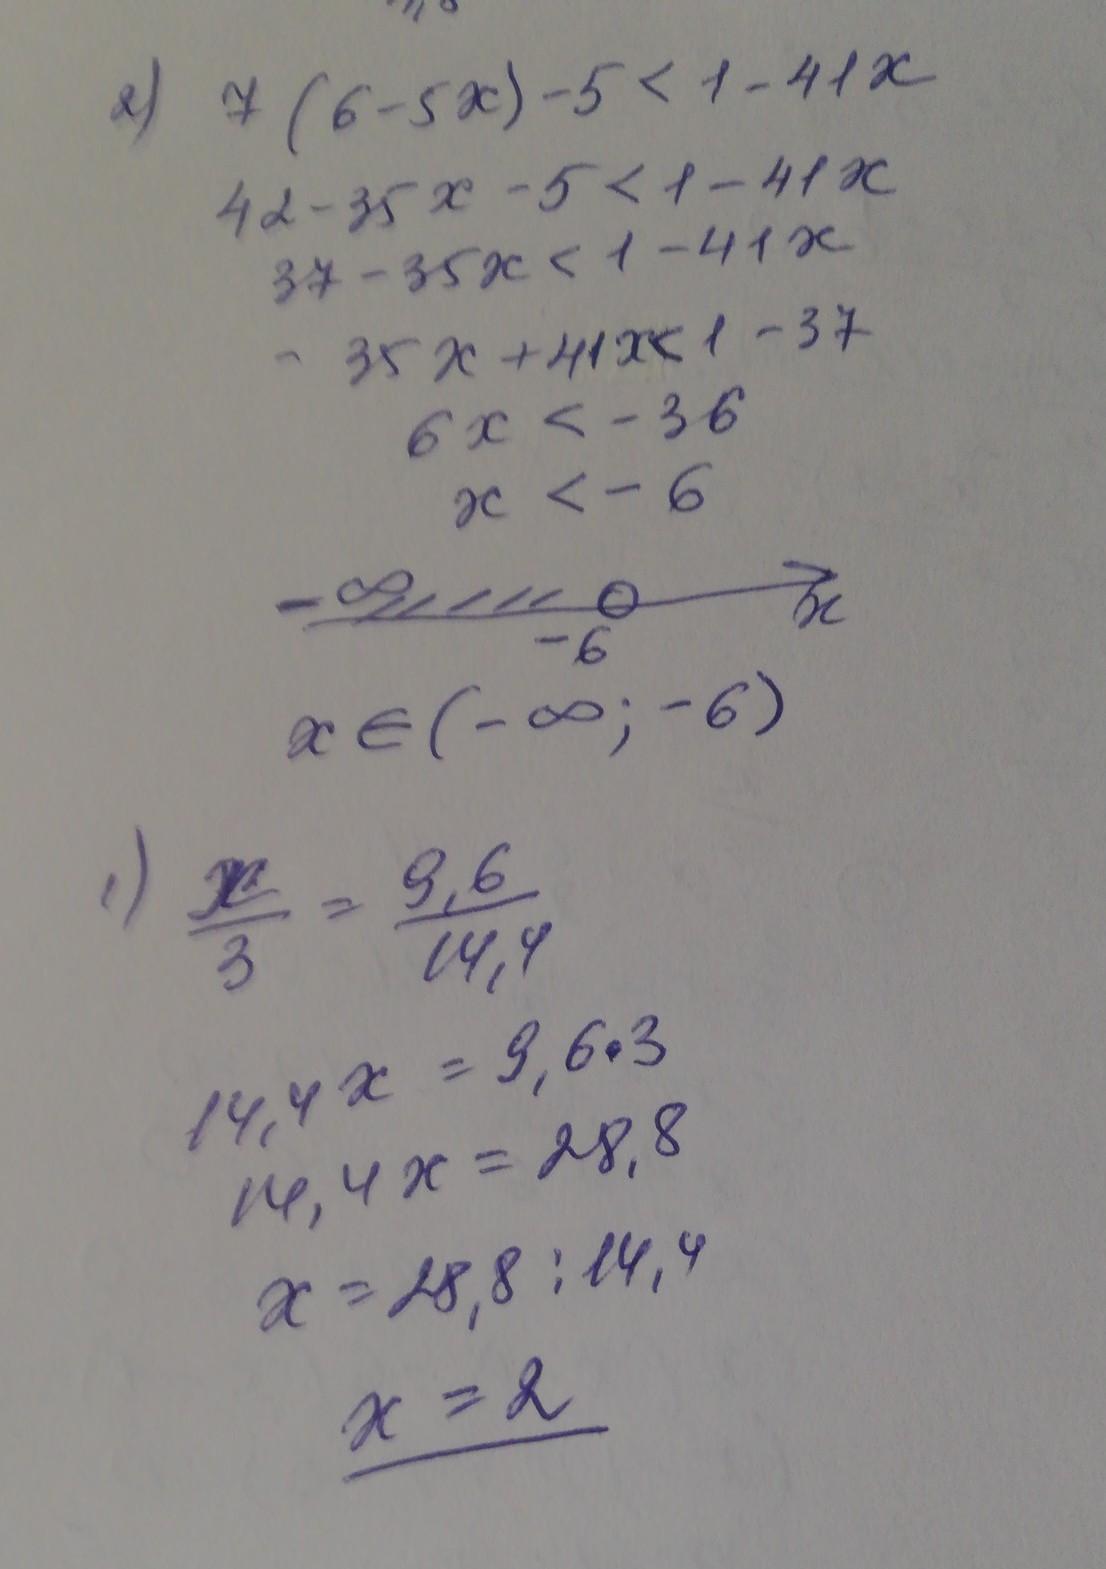 2) 7(6-5x)-5<1-41x
42-35x-5<1-41x
37-35x<1-41x
-35x+41x<1-37
6x<-36
x<-6
-∞
-6
x
x∈(-∞;-6)
1) x/3=9,6/14,4
14,4x=9,6•3
14,4x=28,8
x=28,8:14,4
x=2